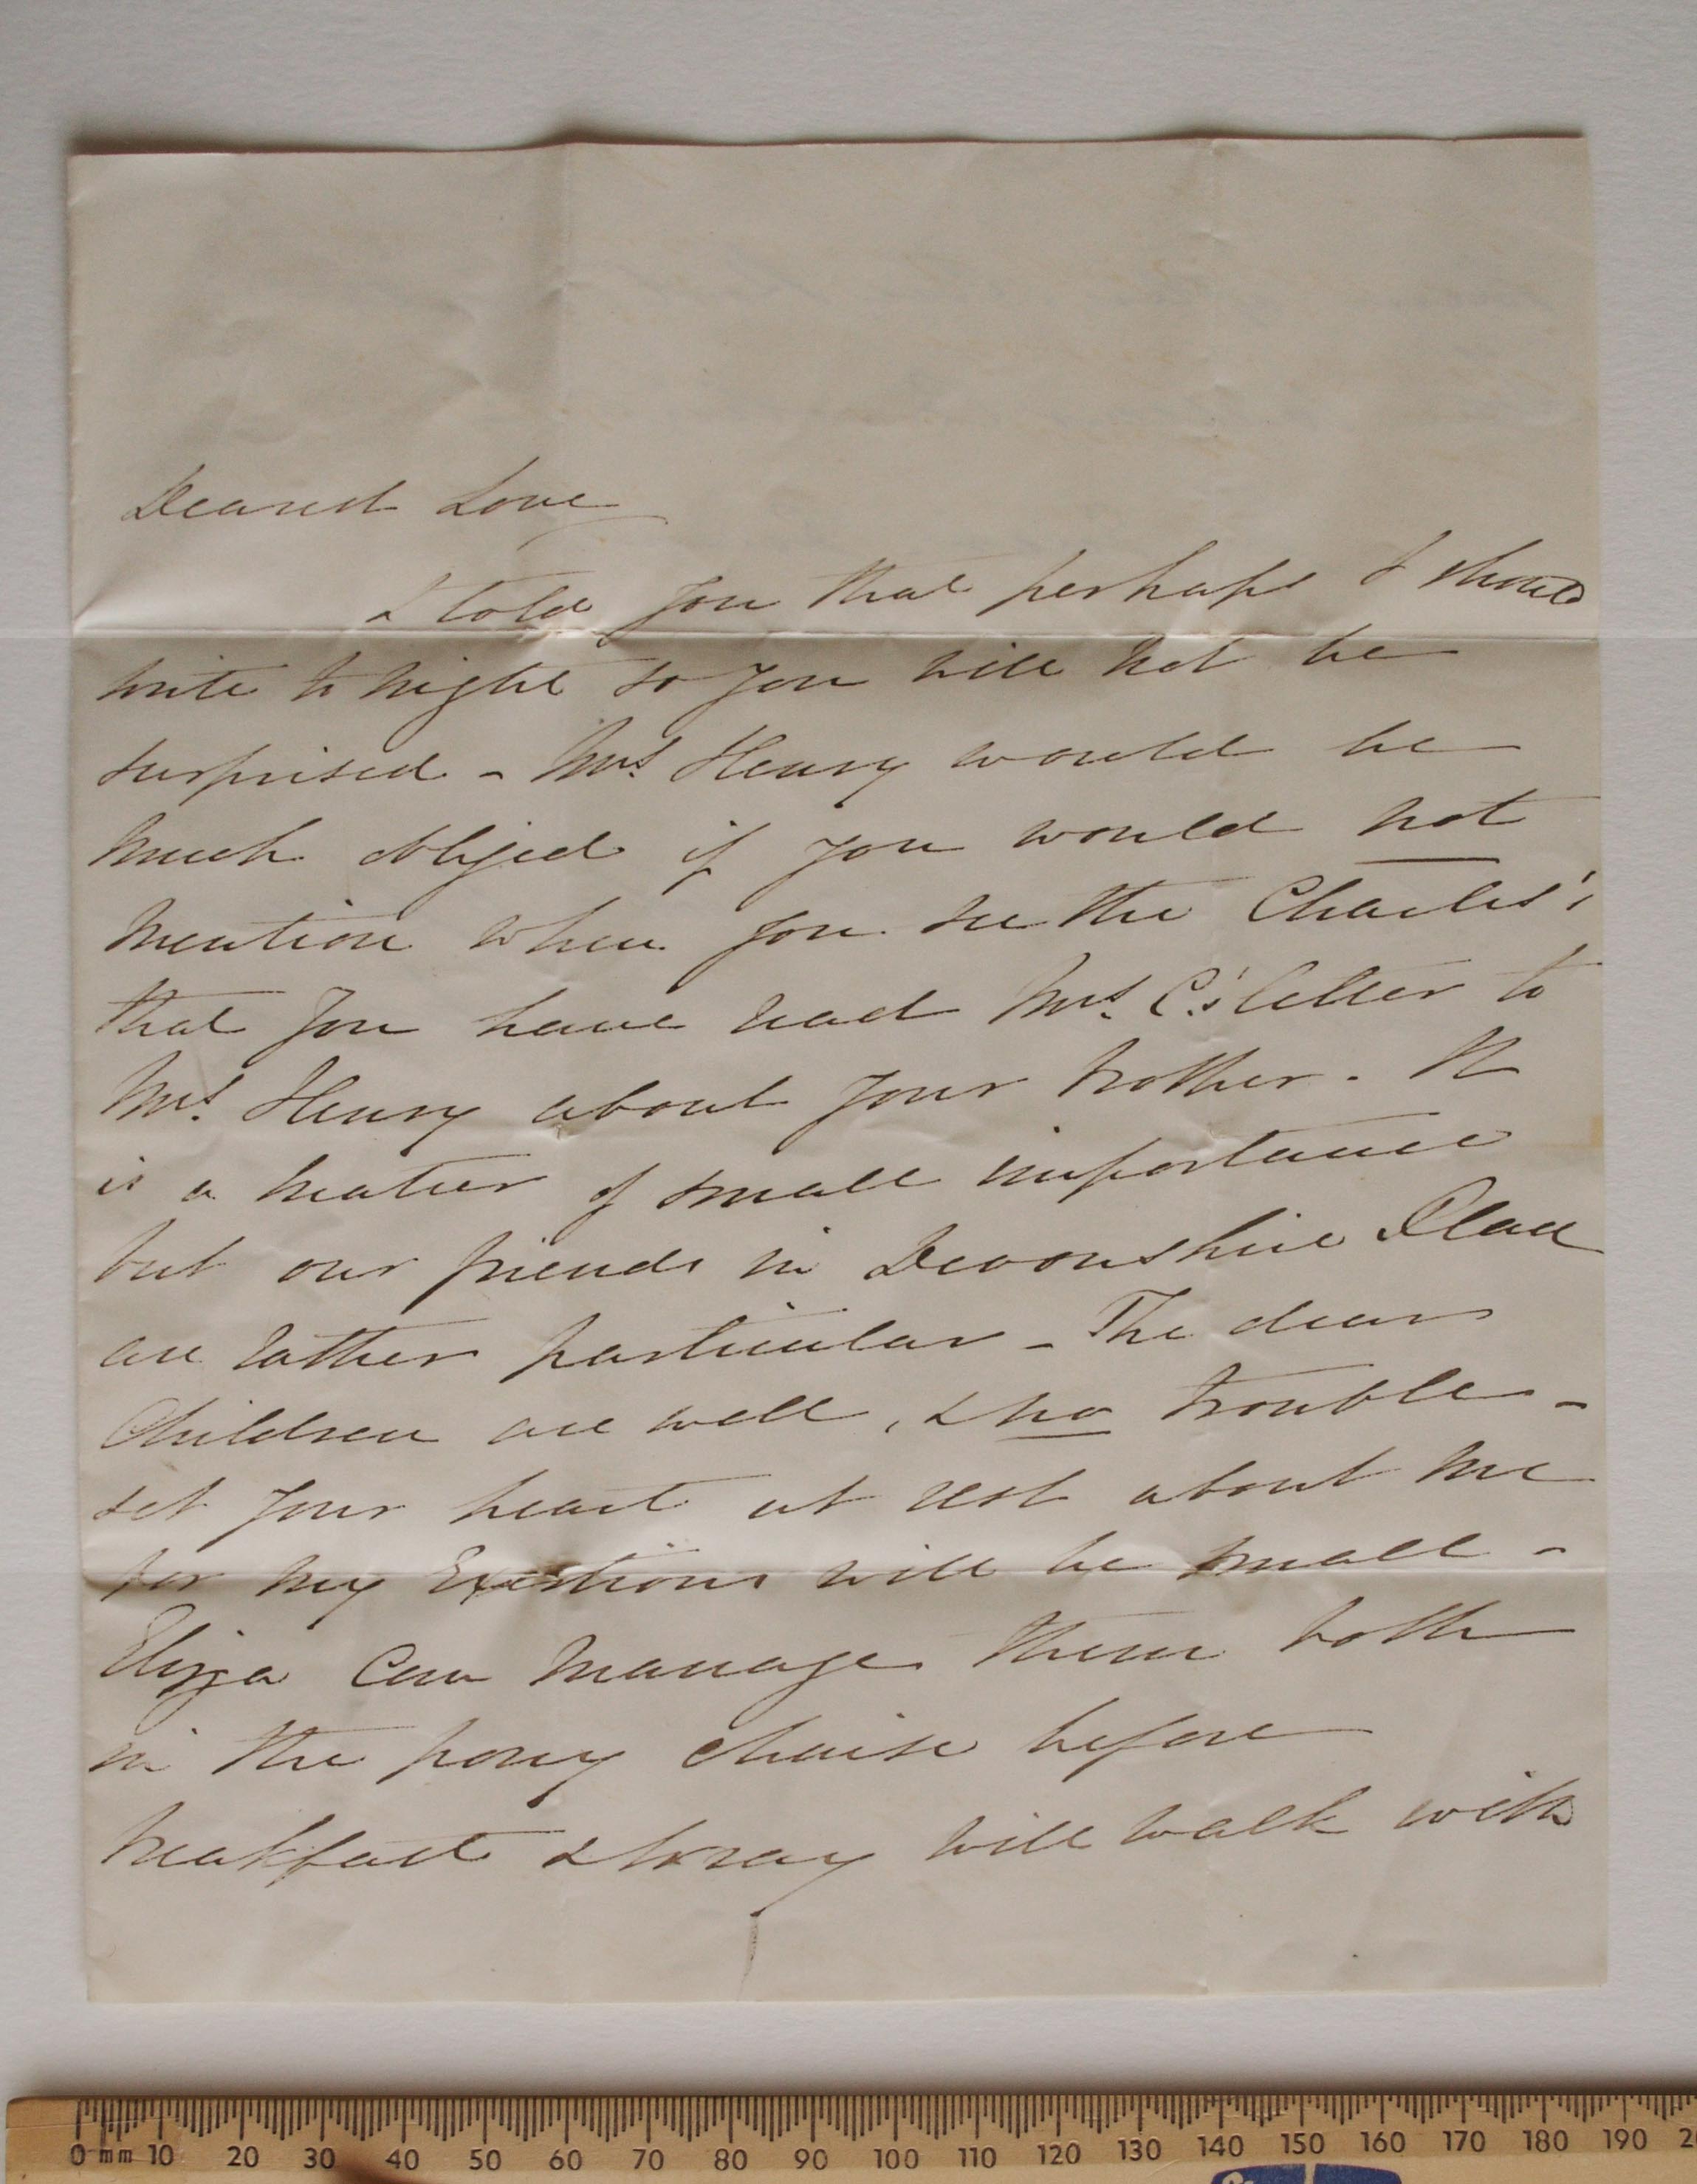 Dearest Love
I told you that perhaps I should
write to night so you will not be
surprised - Mrs. Henry would be
much obliged if you would not
mention when you see the Charles's
that you have read Mrs. C's letter to
Mrs. Henry about your brother. It
is a matter of small importance
but our friends in Devonshire Place
are rather particular - The dear
Children are well, & no trouble -
set your heart at rest about me
for my Exertions will be small -
Eliza can manage them both
in the pony chaise before
breakfast & will walk with
0 mm 10 20 30 40 50 60 70 80 90 100 110 120 130 140 150 160 170 180 190